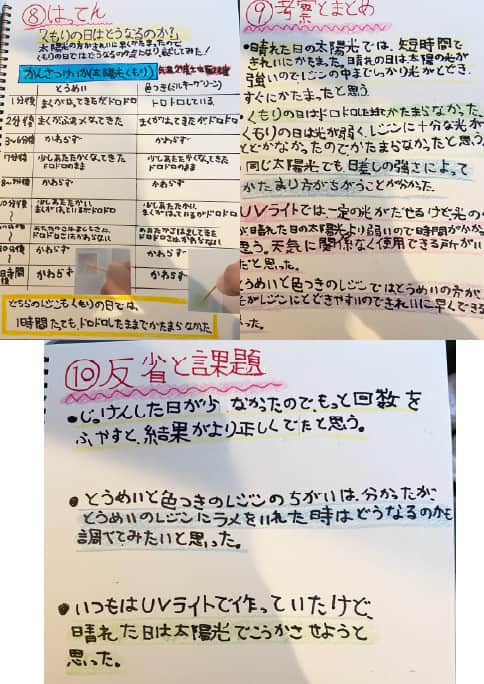 ⑧はってん
くもりの日はどうなるのか?
太陽光の方がきれいに早くかたまったので
くもりの日ではどうなるのか気になり試してみた!
かんさつけいか(太陽光くもり)
とうめい
色つき(ミルキーグリーン)
1分後 まくがはってきたがドロドロ ドロドロしている
2分後 まくがぶあつくなってきた まくがはってきたがドロドロ
3〜6分後 かわらず かわらず
7分後 少しあたたかくなってきた 少しあたたかくなってきた
ドロドロのまま ドロドロのまま
かわらず かわらず
10分後 少しあたたかい 少しあたたかい
まくがはっているがドロドロ まくがはっているがドロドロ
かわらず かわらず
1時間後 かわらず かわらず
どちらのレジンもくもりの日では、
1時間たっても、ドロドロしたままでかたまらなかった
⑨考察とまとめ
・晴れた日の太陽光では、短時間で
きれいにかたまった。晴れの日は太陽の光が
強いのでレジンの中までしっかり光がとどき、
すぐにかたまったと思う。
・くもりの日はドロドロしたままでかたまらなかった。
くもりの日は光が弱く、レジンに十分な光が
とどかなかったのでかたまらなかったと思う。
同じ太陽光でも、日差しの強さによって
かたまり方がちがうことが分かった。
UVライトでは、一定の光がだせるけど光の
が晴れた日の太陽光より弱いので時間がかか
思う。天気に関係なく使用できる所がい
だと思った。
とうめいと色つきのレジンではとうめいの方が
たがレジンにとどきやすいのできれいに早くできる
った。
⑩反省と課題
・じっけんした日が少なかったので、もっと回数を
ふやすと、結果がより正しくでたと思う。
・とうめいと色つきのレジンのちがいは、分かったが、
とうめいのレジンにラメをいれた時はどうなるのかも
調べてみたいと思った。
・いつもはUVライトで作っていたけど、
晴れた日は太陽光でこうかさせようと
思った。